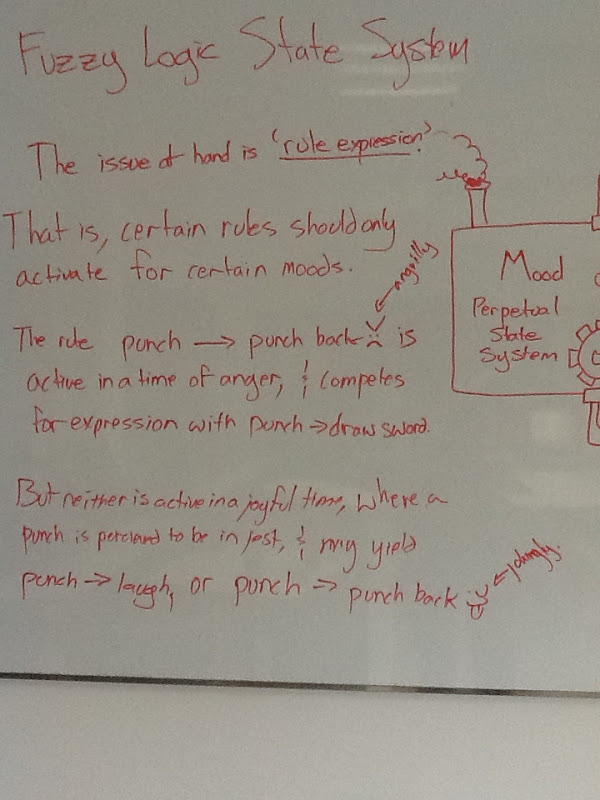 Fuzzy Logic State System
The issue at hand is 'rule expression'.
That is, certain rules should only
activate for certain moods.
angrily
The rule punch → punch back is
active in a time of anger, & competes
for expression with punch → draw sword.
But neither is active in a joyful time, where a
punch is percieved to be in jest, & may yield
punch → laugh, or punch → punch back
jokingly.
Mood
Perpetual
State
System